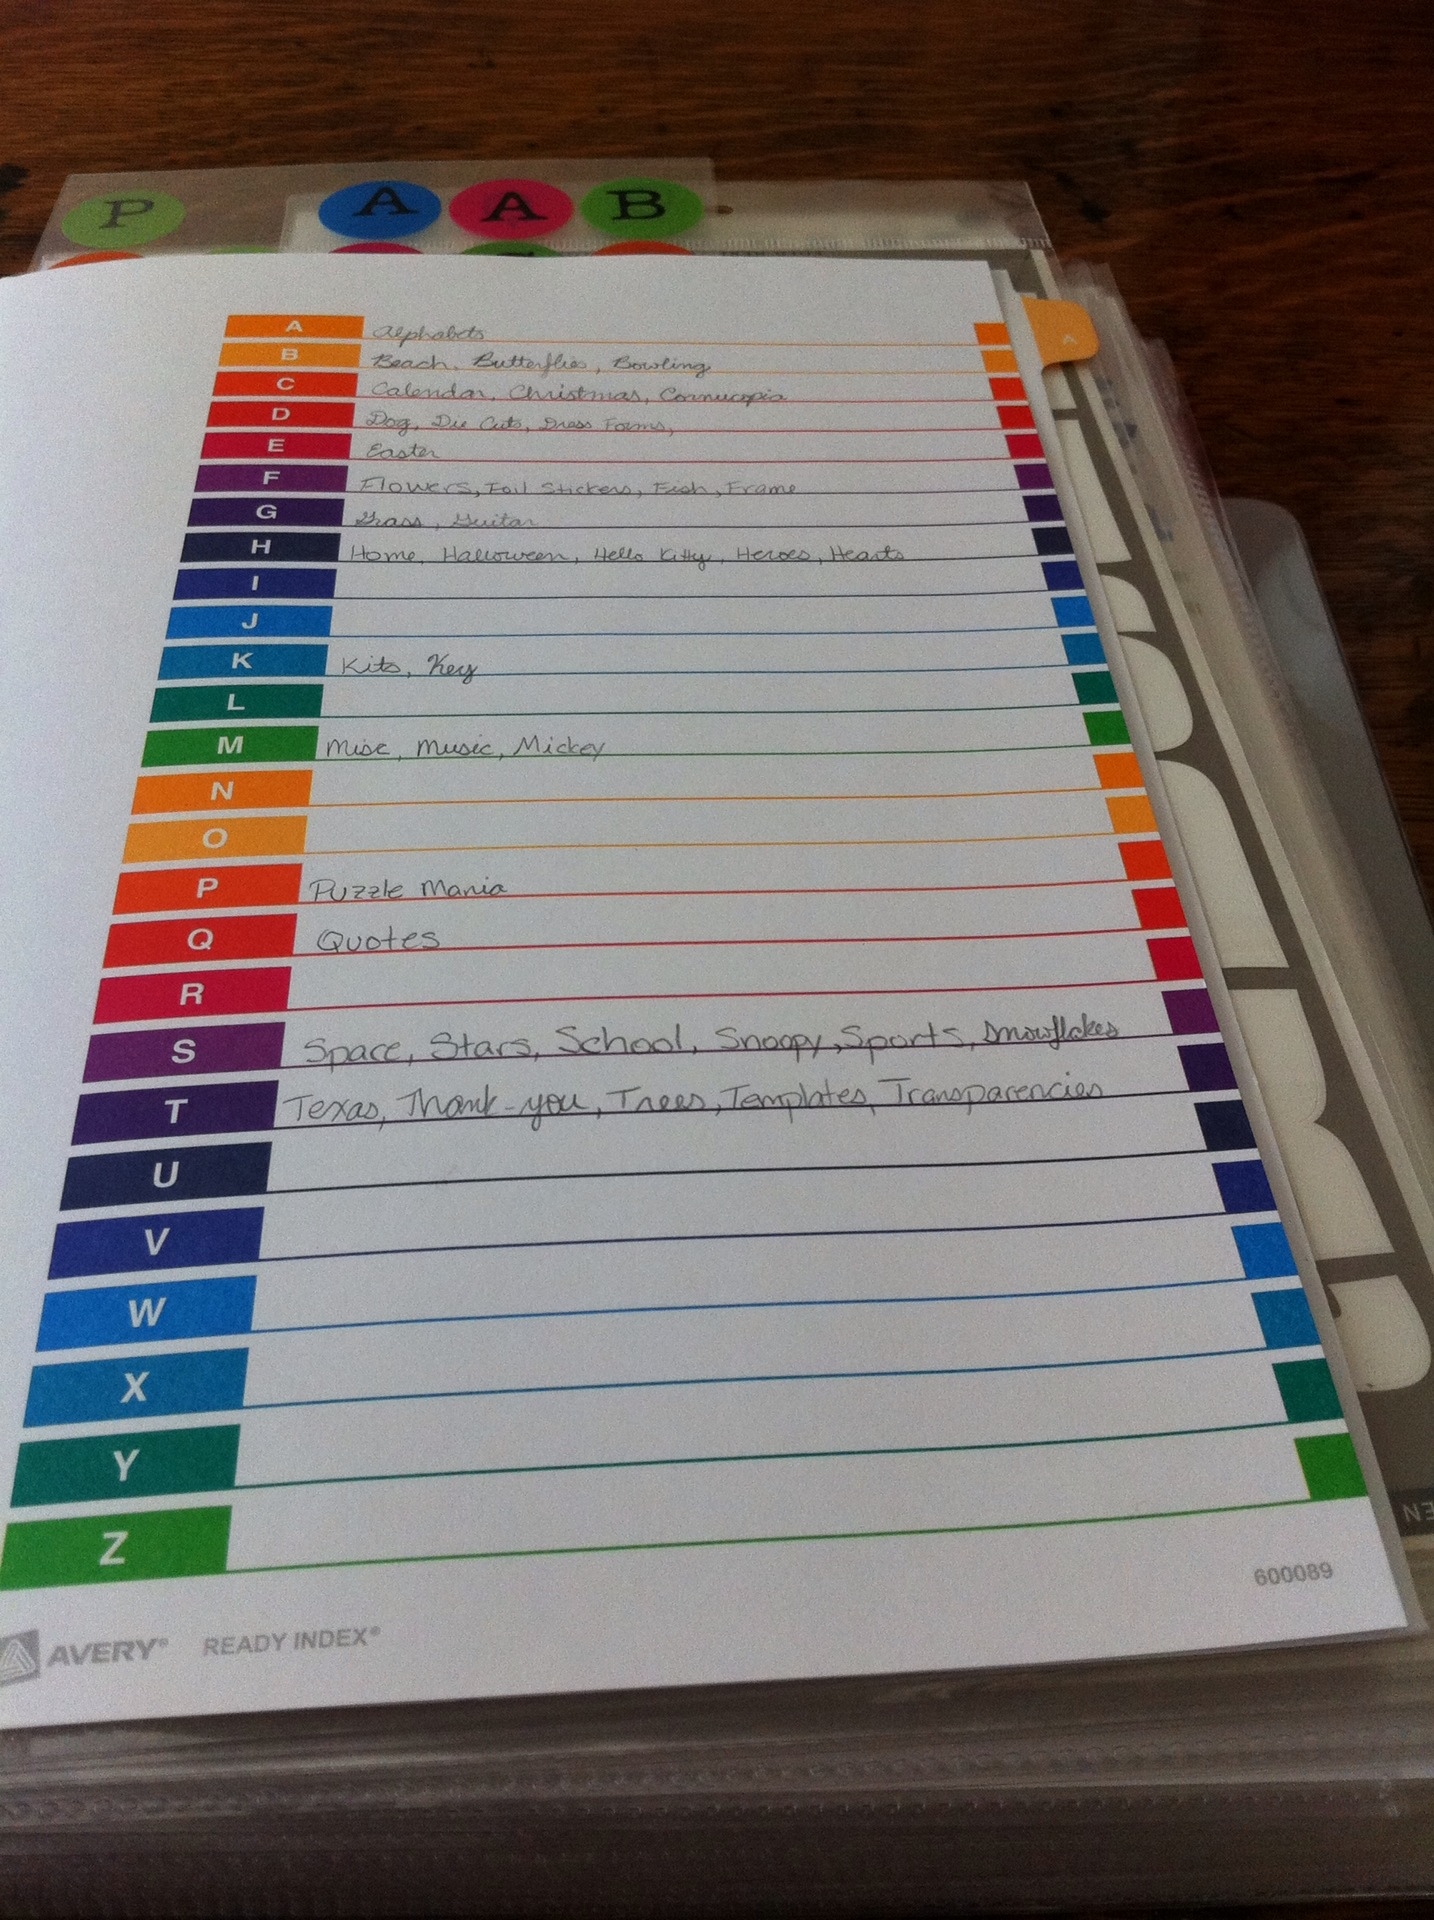 P A A B
A Alphabets
A
B Beach, Butterflies, Bowling
C Calendar, Christmas, Cornucopia
D Dog, Die Cuts, Dress Forms,
E Easter
F Flowers, Foil Stickers, Fish, Frame
G Grass, Guitar
H Home, Halloween, Hello Kitty, Heroes, Hearts
I
J
K Kits, Key
L
M Misc, Music, Mickey
N
O
P Puzzle Mania
Q Quotes
R
S Space, Stars, School, Snoopy, Sports, Snowflakes
T Texas, Thank-you, Trees, Templates, Transparencies
U
V
W
X
Y
Z
600089
AVERY® READY INDEX®